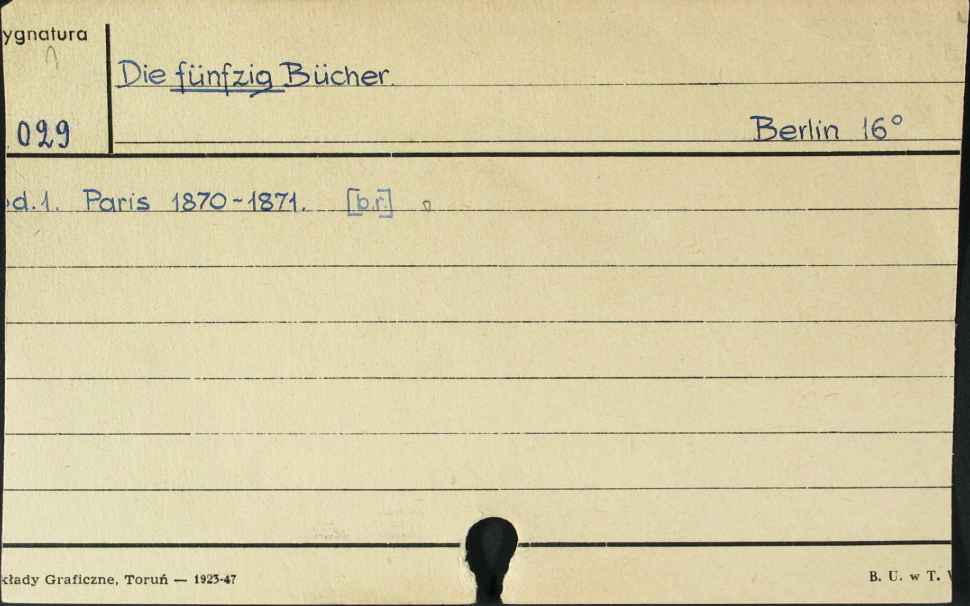 ygnatura
Die fünfzig Bücher.
029
Berlin 16°
d.1. Paris 1870-1871. [b.r.]
kłady Graficzne, Toruń — 1923-47
B. U. w T.